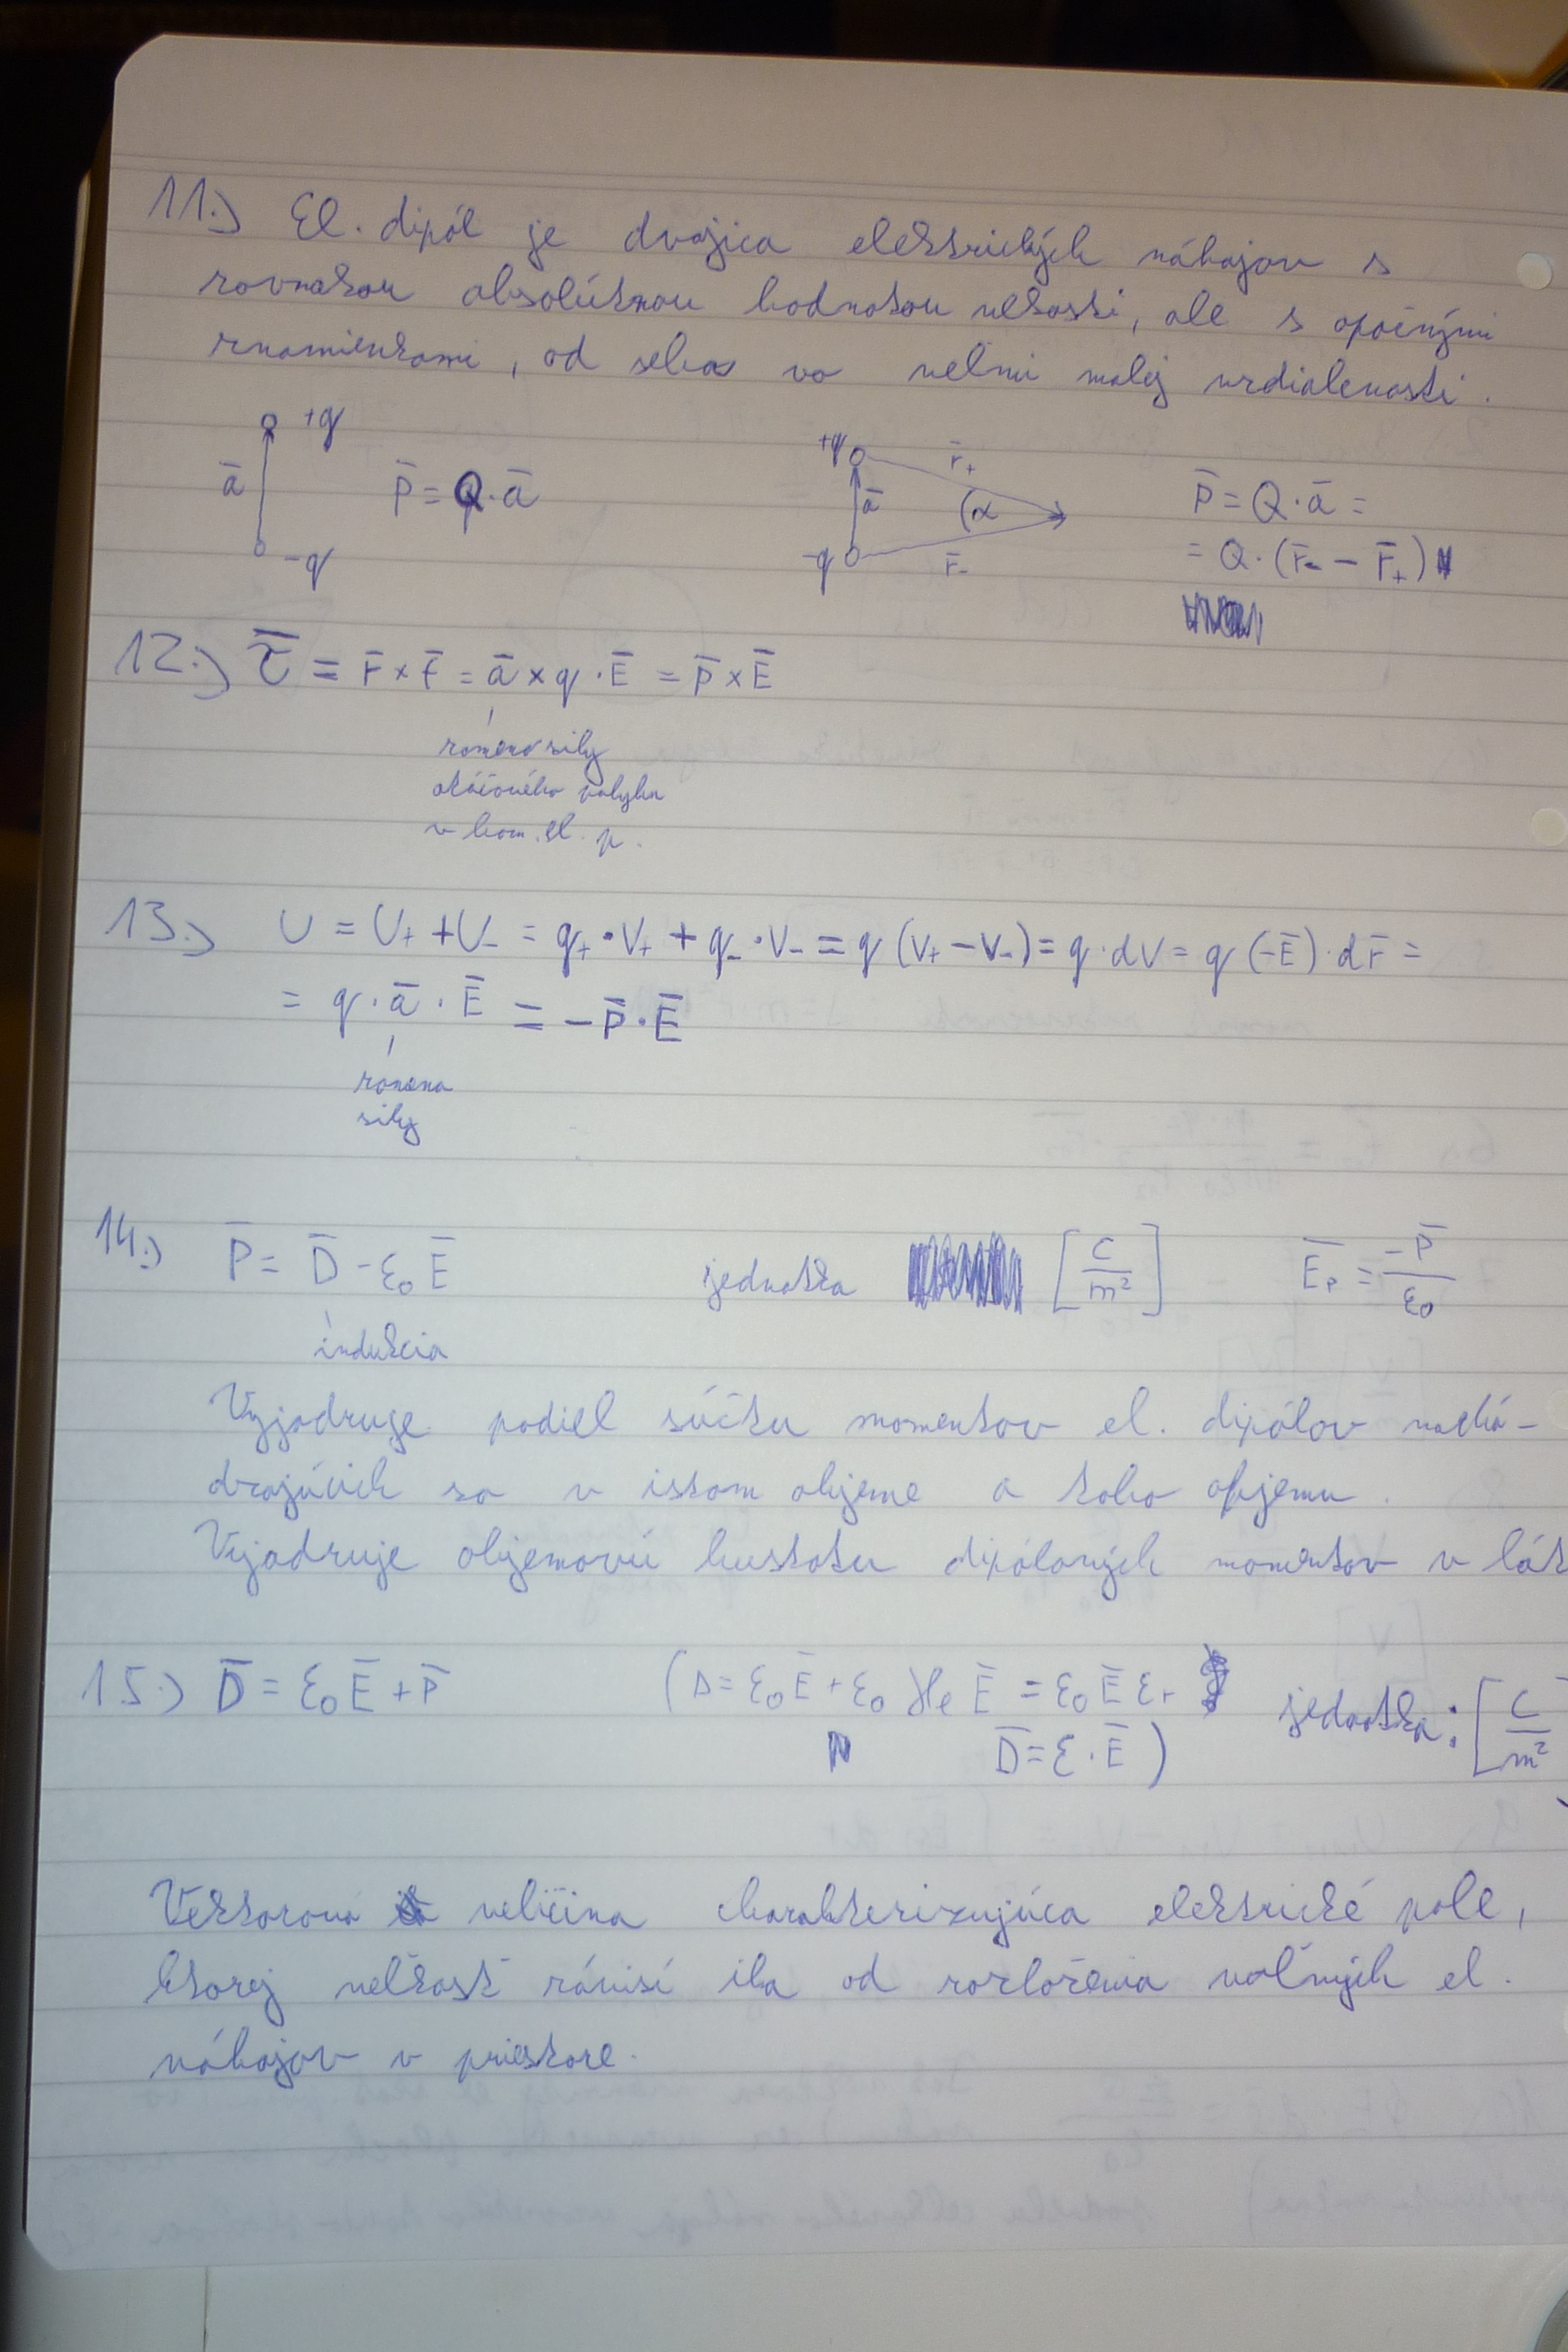 11.) El. dipól je dvojica elektrických nábojov s
rovnakou absolútnou hodnotou veľkosti, ale s opačnými
znamienkami, od seba vo veľmi malej vzdialenosti.
+q
a̅
-q
p̅ = Q·a̅
+q
r̅₊
a̅
α
-q
r̅₋
p̅ = Q·a̅ =
= Q·(r̅₋ - r̅₊)
12.) τ̅ = r̅ × F̅ = a̅ × q·E̅ = p̅ × E̅
rameno sily
otáčavého pohybu
v hom. el. p.
13.) U = U₊ + U₋ = q₊·V₊ + q₋·V₋ = q(V₊ - V₋) = q·dV = q(-E̅)·dr̅ =
= q·a̅·E̅ = -p̅·E̅
ramena
sily
14.) P̅ = D̅ - ε₀E̅ jednotka [C/m²] E̅ₚ = -P̅/ε₀
indukcia
Vyjadruje podiel súčtu momentov el. dipólov nachá-
dzajúcich sa v istom objeme a toho objemu.
Vyjadruje objemovú hustotu dipólových momentov v lát
15.) D̅ = ε₀E̅ + P̅ (D = ε₀E̅ + ε₀ϰₑE̅ = ε₀E̅εᵣ jednotka: [C/m²
D̅ = ε·E̅)
Vektorová veličina charakterizujúca elektrické pole,
ktorej veľkosť závisí iba od rozloženia voľných el.
nábojov v priestore.